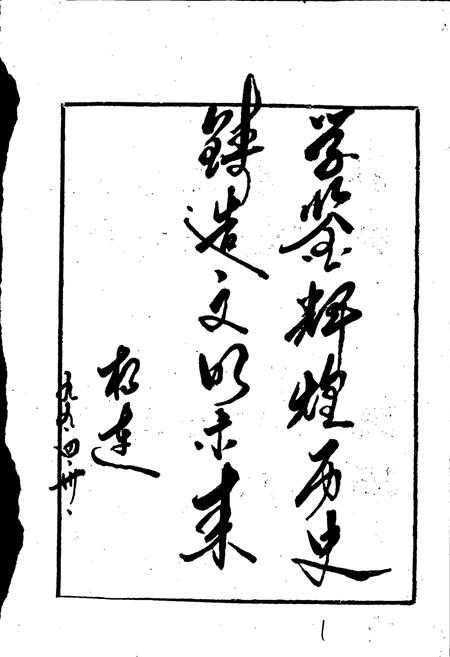 学鉴辉煌历史
铸造文明未来
九九.四.卅.
1